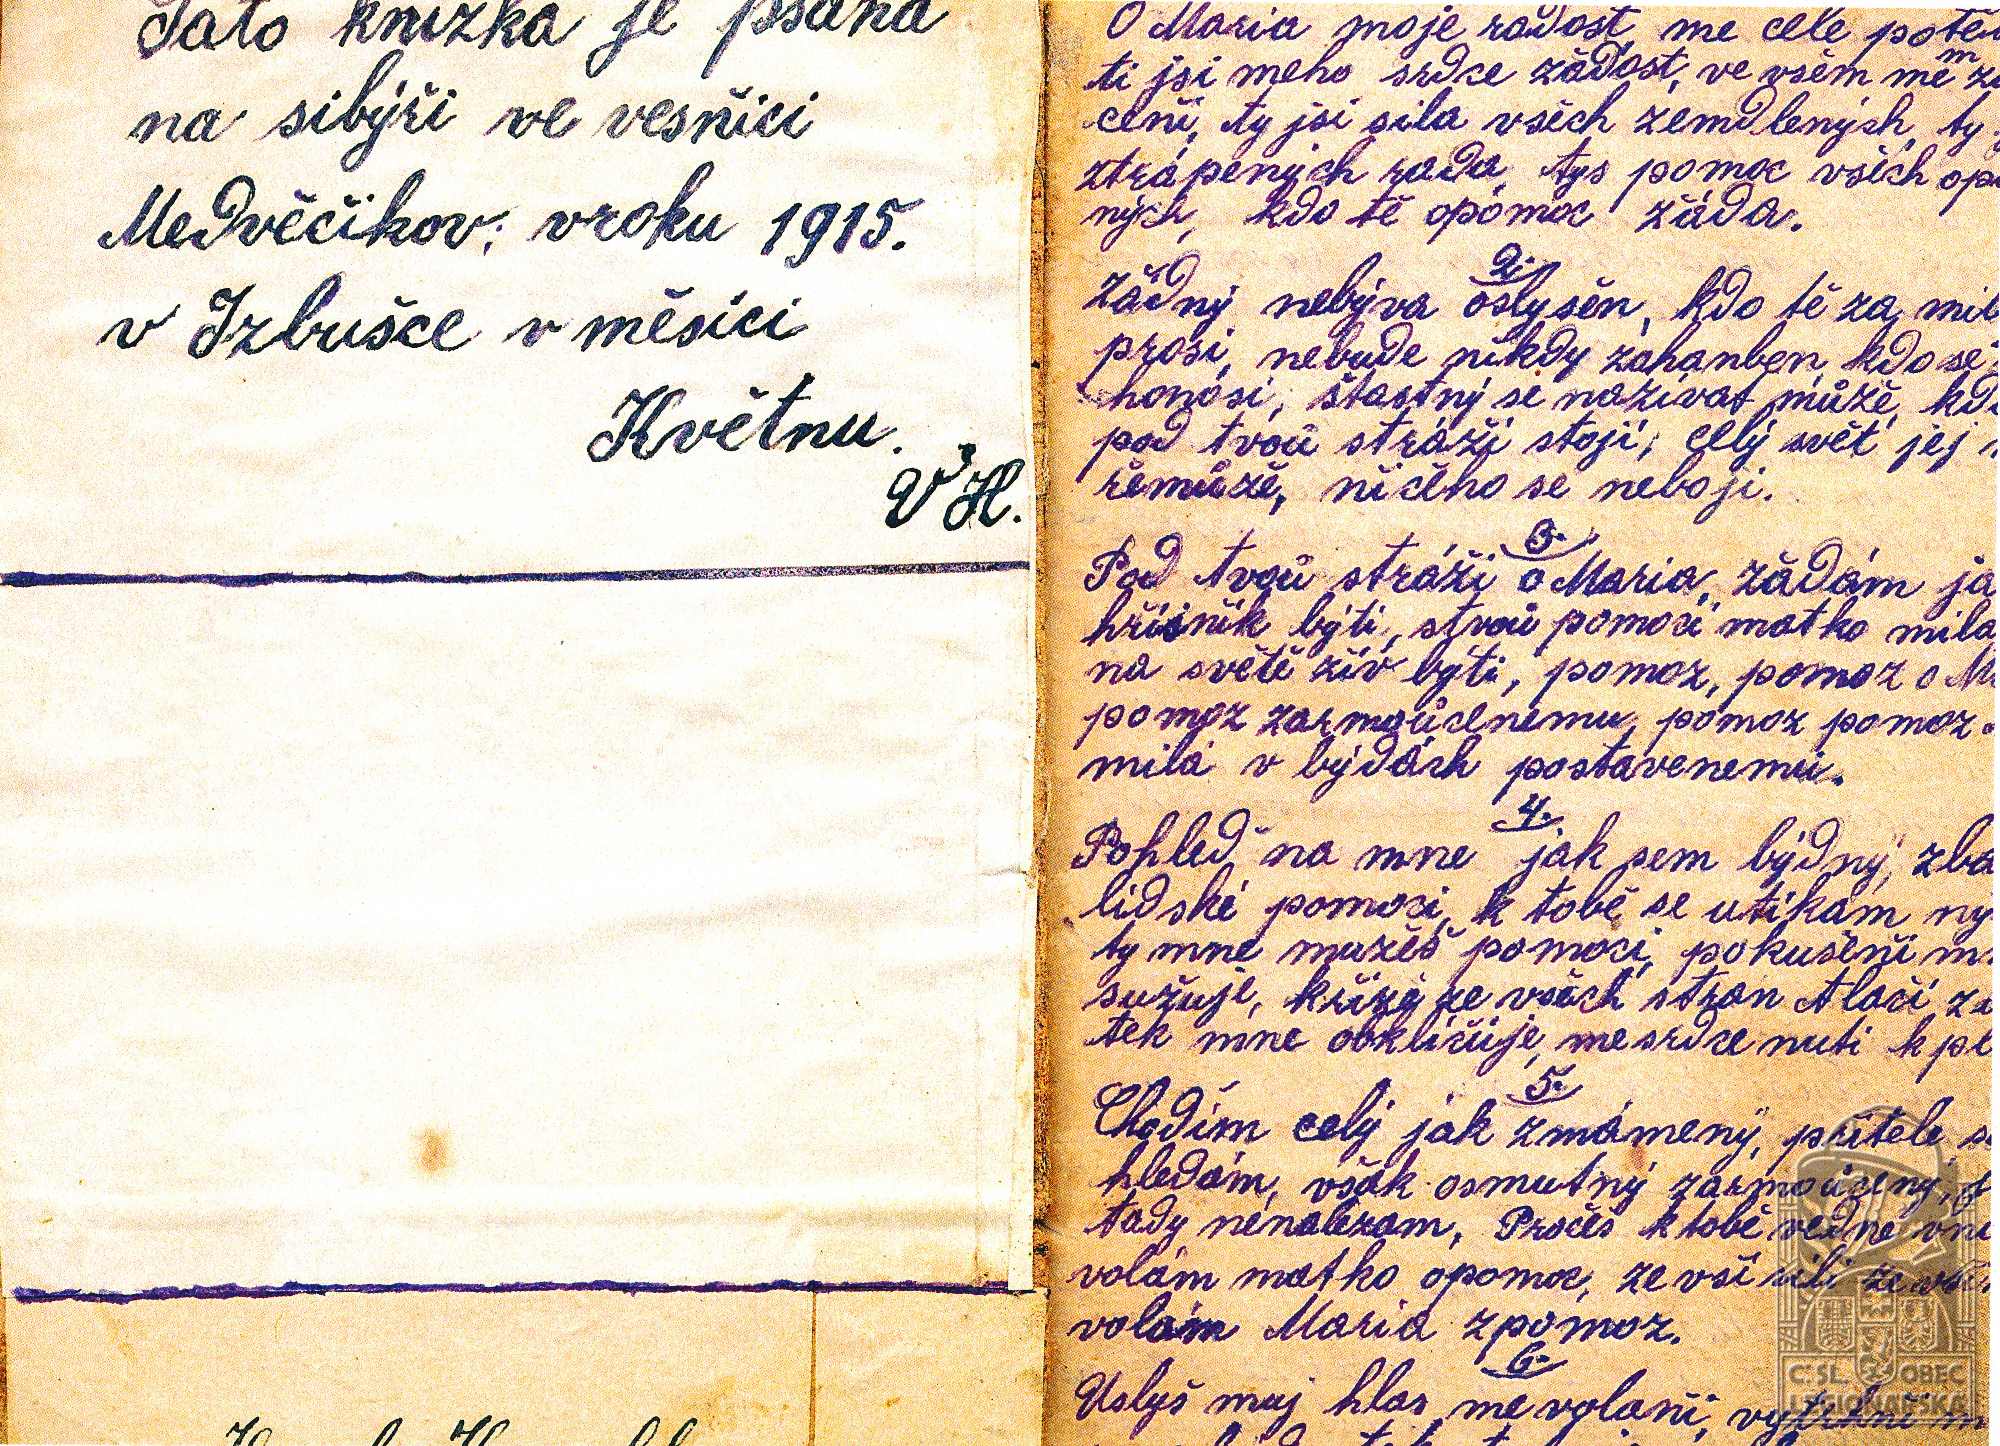 Tato knížka je psaná
na sibýři ve vesňici
Medvěčikov, vroku 1915.
v Izbušce v měsíci
Květnu.
V H.
O Maria moje radost, me cele potě
ti jsi meho srdce žádost, ve všem mem za
ceňi, ty jsi sila všěch zemdlených, ty
ztrápených rada, tys pomoc všěch opu
ných, kdo tě opomoc žáda.
2.
žádný nebýva oslyšěn, kdo tě za mil
prosi, nebude nikdy zahanben kdo se
honosi, štastný se nazivat můžě, kdo
pod tvoů stráži stoji, celý svět jej
řemůžě, ničeho se neboji.
3.
Pod tvoů stráži o Maria, žádám ja
hřišnik býti, stvoů pomoci matko mila
na světě živ býti, pomoz, pomoz o M
pomoz zarmoůcenemu, pomoz pomoz
milá v býdách postavenemu.
4.
Pohleď na mne jak sem býdný, zba
lidské pomoci, k tobě se utikám ny
ty mne mužěš pomoci, pokušeňi m
sužuje, křižě ze všěch stran tlači, za
tek mne obkličuje, me srdce nuti k pl
5.
Chodím celý jak zmámený, přitele
hledám, však osmutný zarmoůcený,
tady nenalezam, Pročěš k tobě vedne vno
volám matko opomoc, ze vši sili ze vši
volám Maria zpomoz.
6.
Uslyš muj hlas, me volaňi, vytrhni
ČSL. OBEC
LEGIONÁŘSKÁ